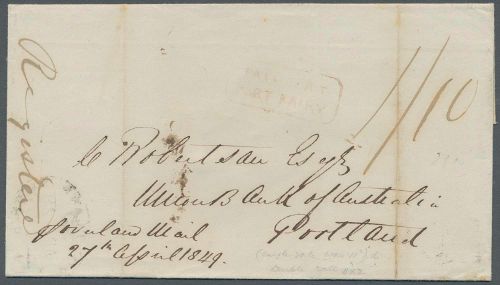 Registered
PAID AT
PORT FAIRY
1/10
C Robertson Esqr
Union Bank of Australia
Portland
pr overland Mail
27th April 1849.
double rate